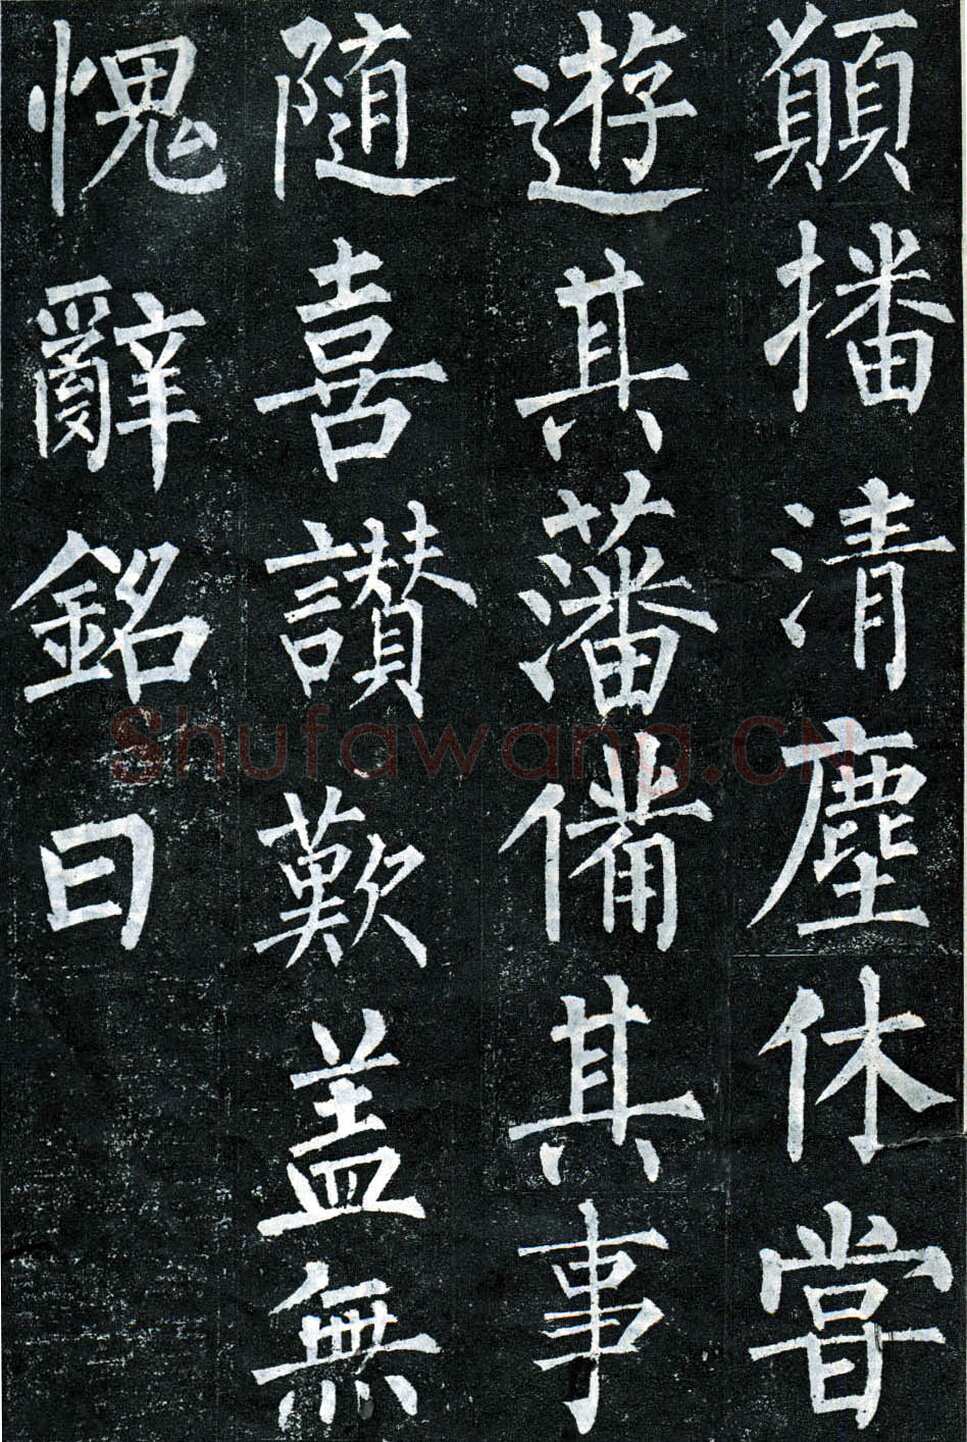 顛播清塵休甞
遊其藩備其事
随喜讃歎盖無
愧辭銘曰
Shufawang.CN